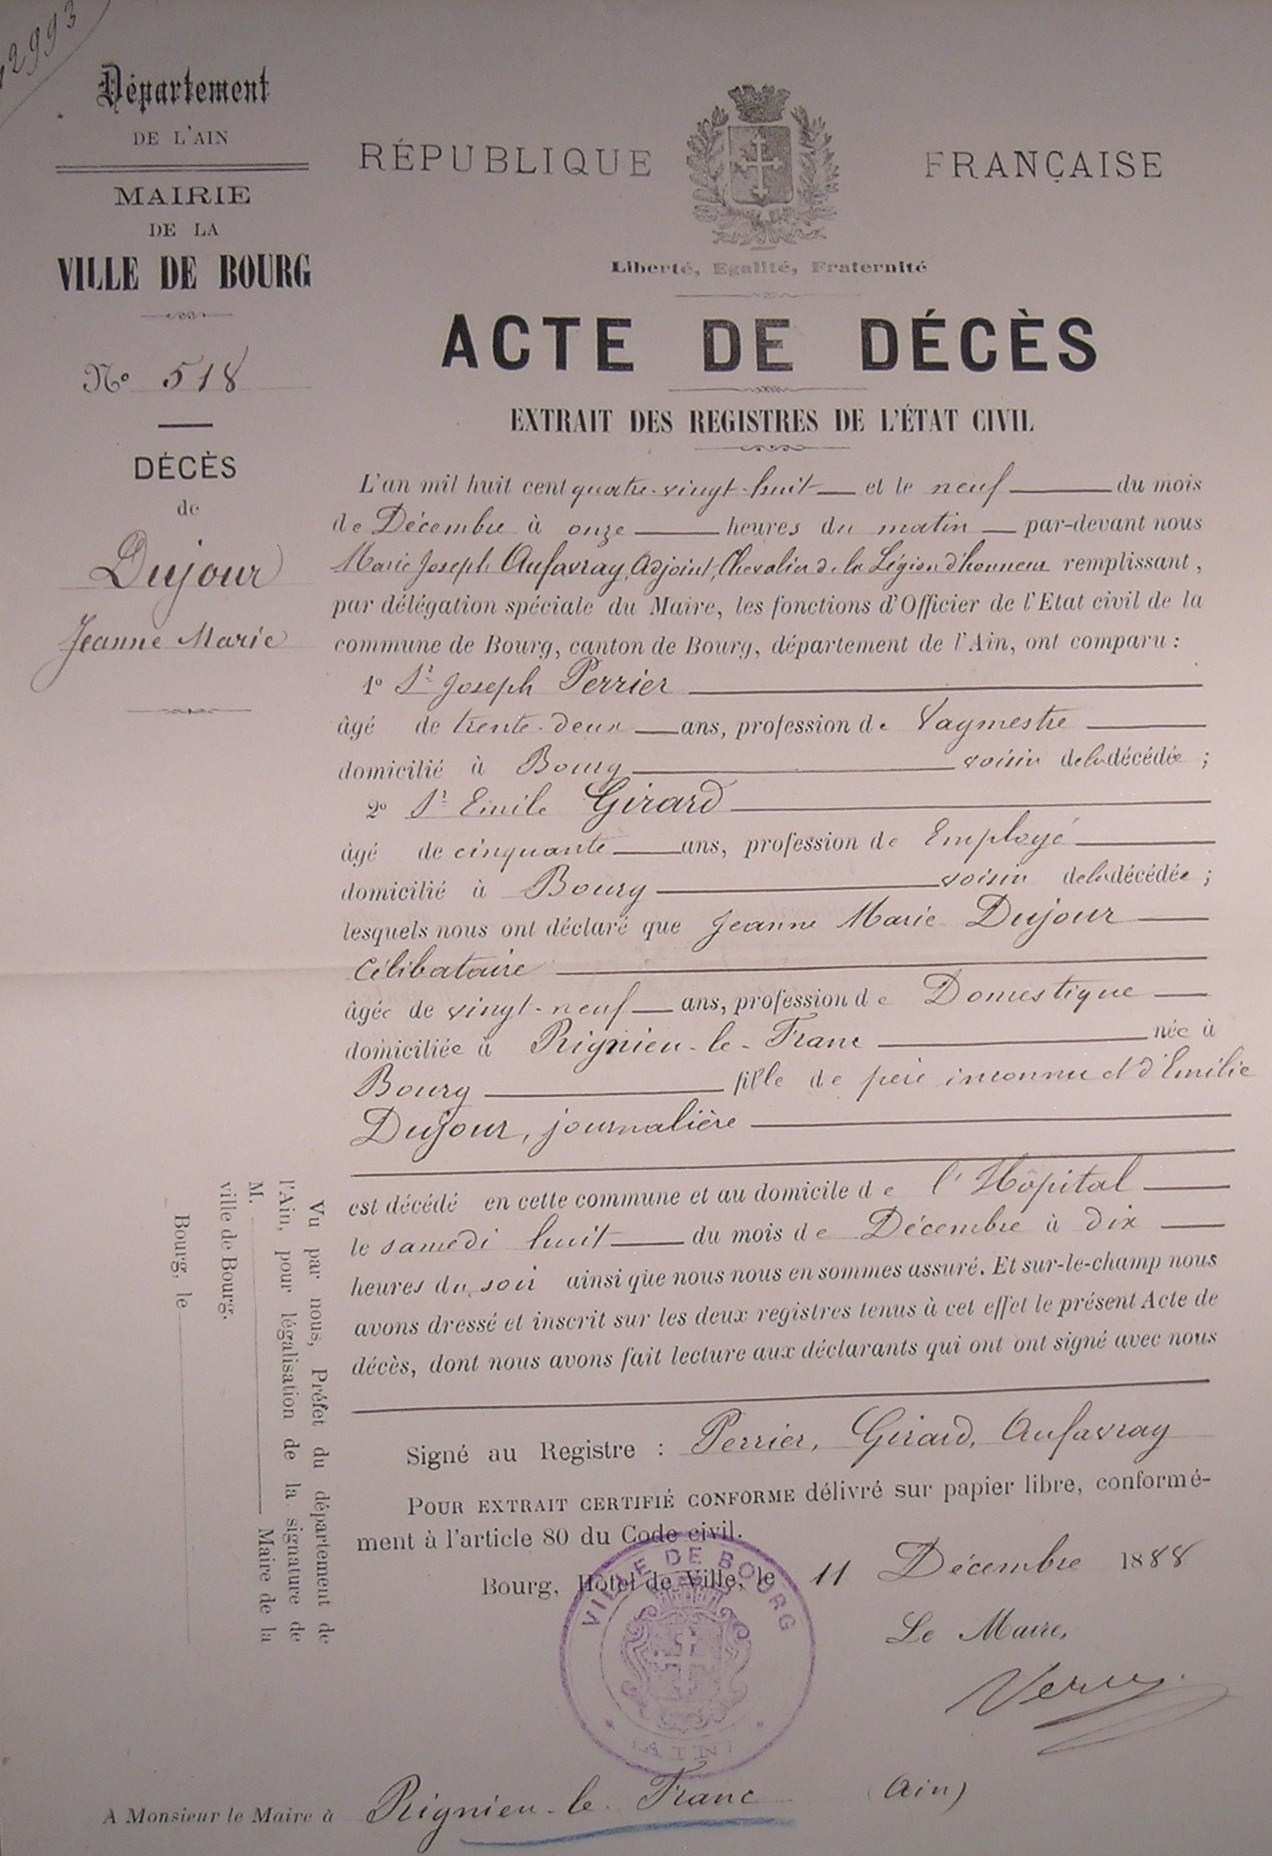 12993
Département
DE L'AIN
MAIRIE
DE LA
VILLE DE BOURG
No 518
DÉCÈS
de
Dujour
Jeanne Marie
RÉPUBLIQUE FRANÇAISE
Liberté, Egalité, Fraternité
ACTE DE DÉCÈS
EXTRAIT DES REGISTRES DE L'ÉTAT CIVIL
L'an mil huit cent quatre-vingt-huit et le neuf du mois
de Décembre à onze heures du matin par-devant nous
Marie Joseph Aufavray, Adjoint, Chevalier de la Légion d'honneur remplissant,
par délégation spéciale du Maire, les fonctions d'Officier de l'Etat civil de la
commune de Bourg, canton de Bourg, département de l'Ain, ont comparu :
1o Sr Joseph Perrier
âgé de trente-deux ans, profession de Vaymestre
domicilié à Bourg voisin de la décédée ;
2o Sr Emile Girard
âgé de cinquante ans, profession de Employé
domicilié à Bourg voisin de la décédée ;
lesquels nous ont déclaré que Jeanne Marie Dujour
Célibataire
âgée de vingt-neuf ans, profession de Domestique
domiciliée à Rignieu-le-Franc née à
Bourg fille de père inconnu et d'Emilie
Dujour, journalière
est décédé en cette commune et au domicile de l'Hôpital
le samedi huit du mois de Décembre à dix
heures du soir ainsi que nous nous en sommes assuré. Et sur-le-champ nous
avons dressé et inscrit sur les deux registres tenus à cet effet le présent Acte de
décès, dont nous avons fait lecture aux déclarants qui ont ont signé avec nous
Signé au Registre : Perrier, Girard, Aufavray
POUR EXTRAIT CERTIFIÉ CONFORME délivré sur papier libre, conformé-
ment à l'article 80 du Code civil.
Bourg, Hôtel de Ville, le 11 Décembre 1888
Le Maire,
VILLE DE BOURG
(AIN)
Vu par nous, Préfet du département de
l'Ain, pour légalisation de la signature de
M. Maire de la
ville de Bourg.
Bourg, le
A Monsieur le Maire à Rignieu-le-Franc (Ain)